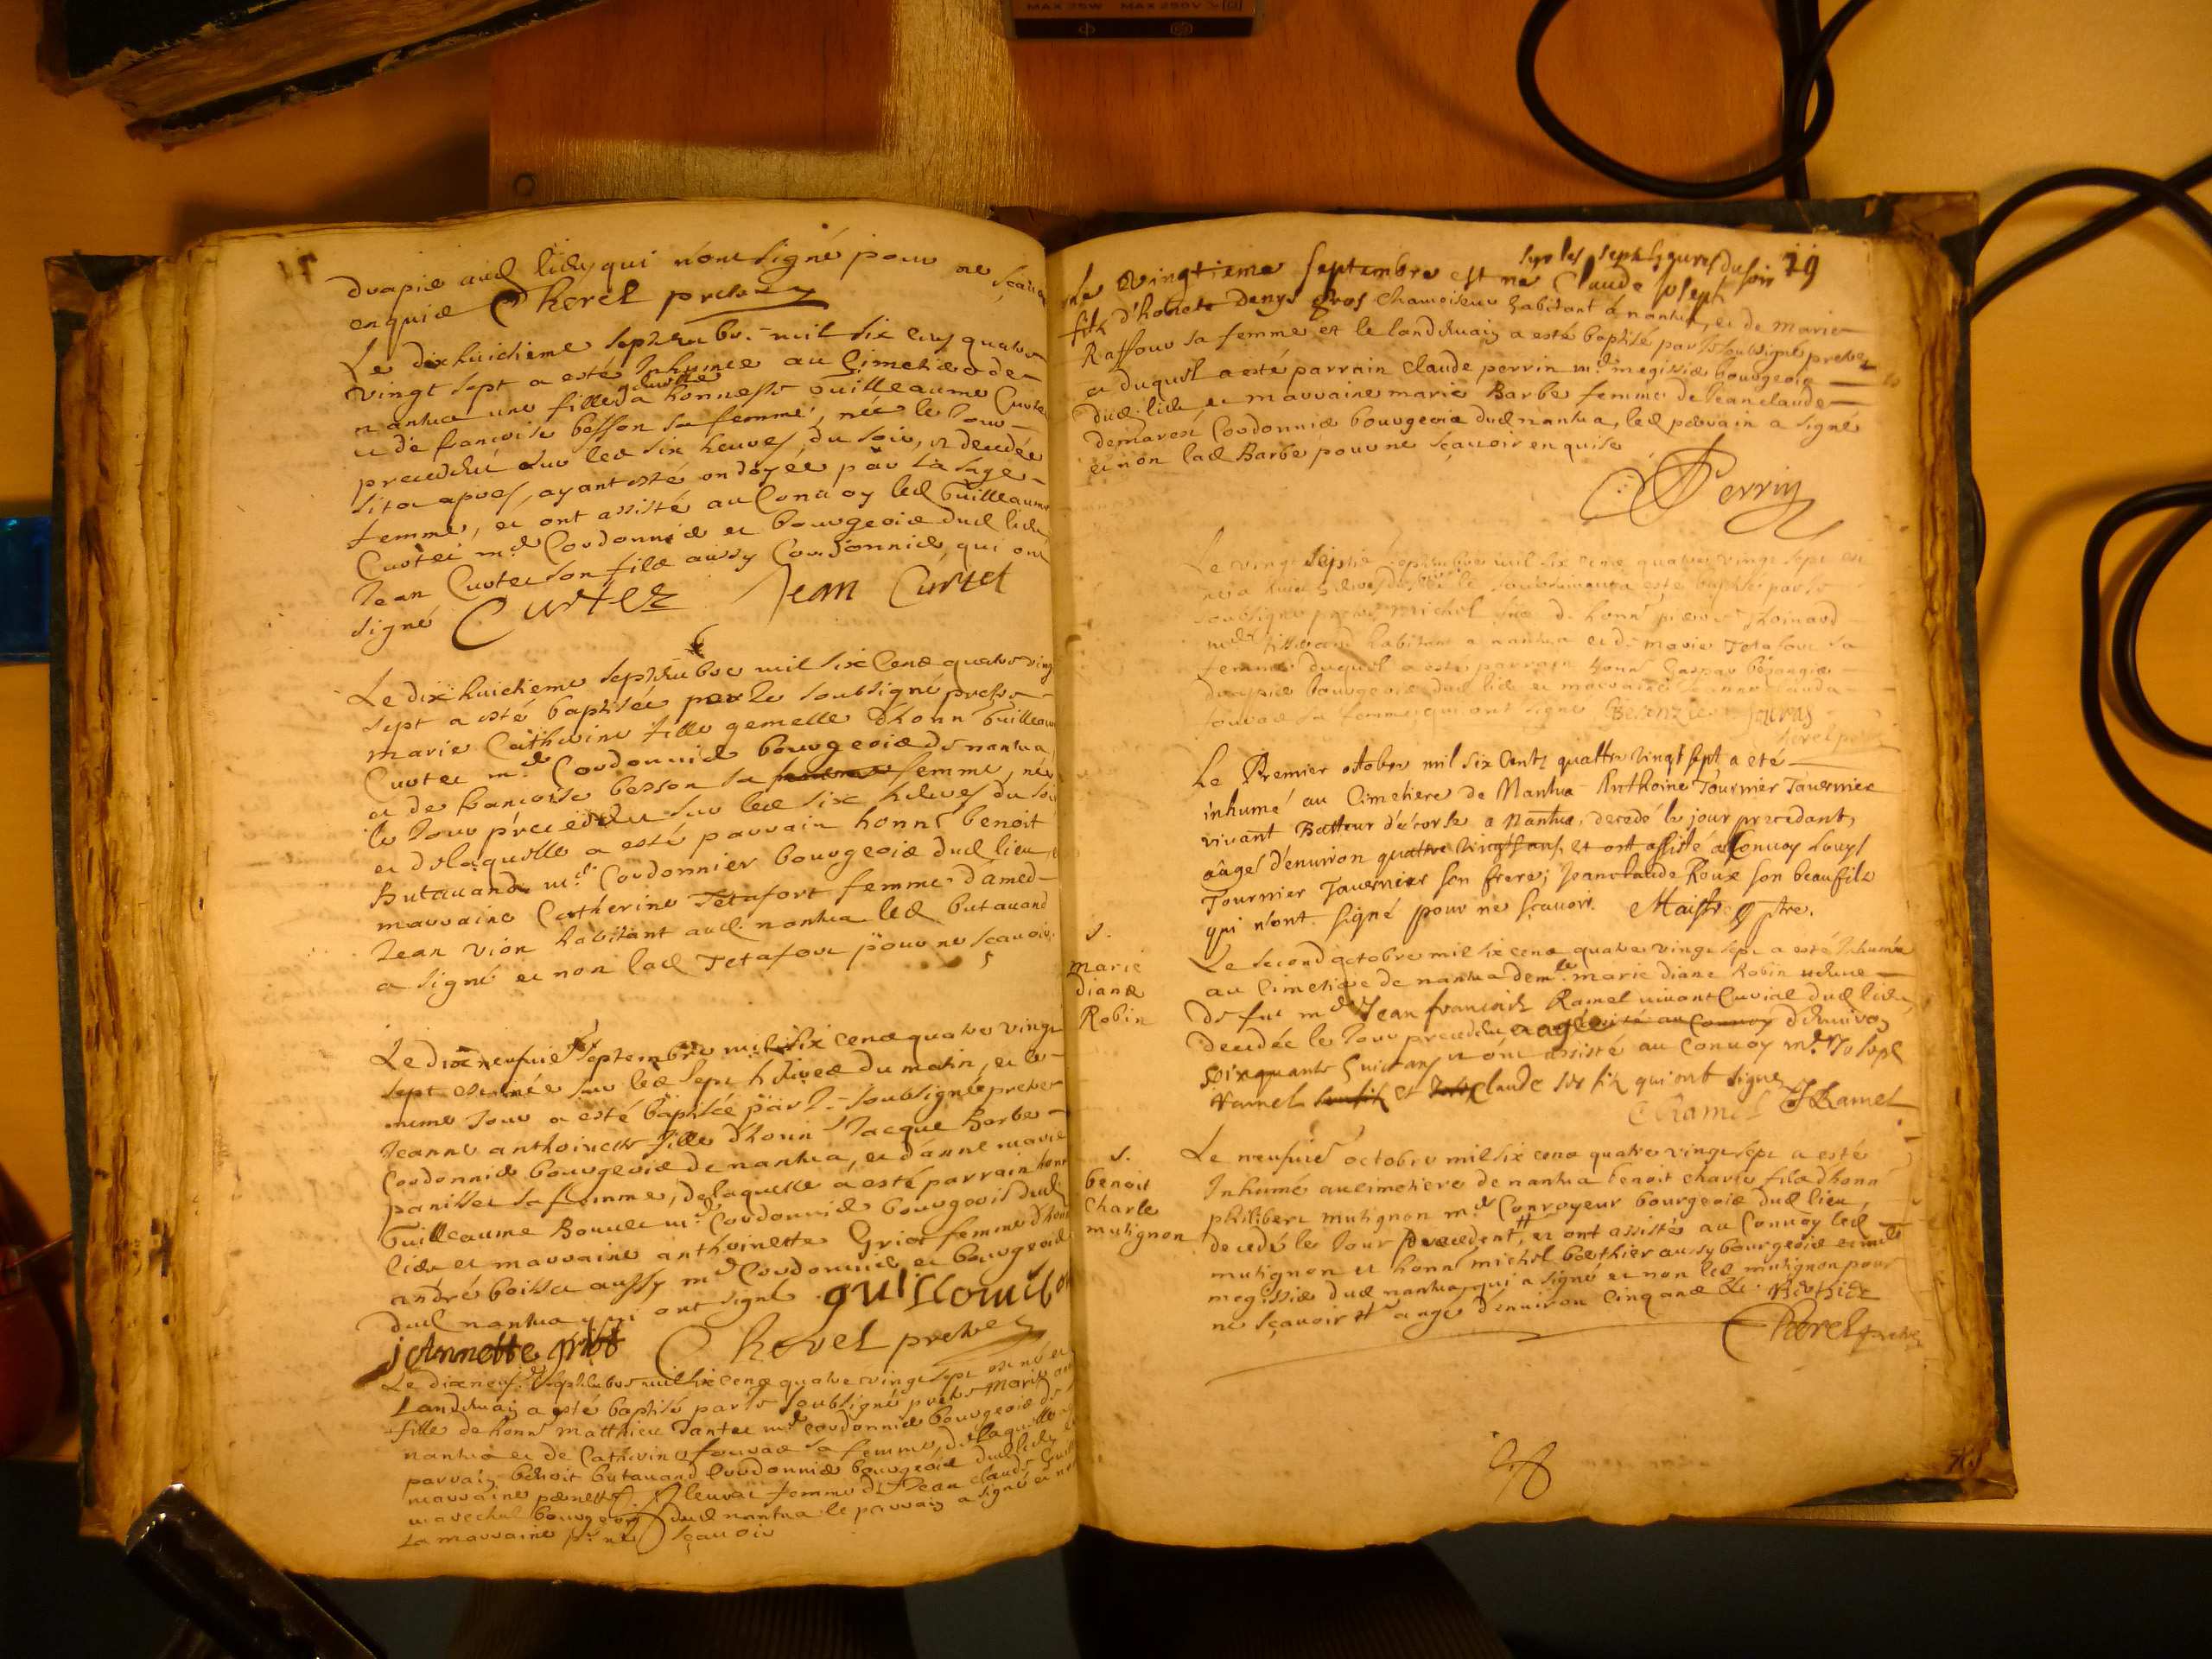 MAX 25W MAX 250V
drapié aud lieu qui n'ont signé pour ne sçauoir
enquis Cherel prebre
Le dix huictieme septembre mil six cens quatre
vingt sept a esté Inhumée au Cimetiere de
nantua une fille gemelle a honneste Guilleaume Curtet
et de francoise besson sa femme, née le jour
precedent sur les six heures du soir, et decedée
sitot apres, ayant esté ondoyée par la sage
femme, et ont assisté au Conuoy led Guilleaume
Curtet md Cordonnié et bourgeois dud lieu
Jean Curtet son fils aussy Cordonnié, qui ont
signé Curtet Jean Curtet
Le dix huictieme septembre mil six Cens quatre vingt
sept a esté baptisée par le soubsigné prebre
marie Catherine fille gemelle d'honn Guilleaume
Curtet md Cordonnié bourgeois de nantua
et de francoise besson sa femme, née
le jour precedent sur les six heures du soir
et de laquelle a esté parrain honn benoit
Butauand md Cordonnier bourgeois dud lieu
marraine Catherine Tetafort femme d'amed
Jean vion habitant aud nantua led butauand
a signé et non lad Tetafort pour ne scauoir
Le dix neufuie septembre mil six cens quatre vingt
sept est née sur les sept heures du matin, et le
mesme jour a esté baptisée par le soubsigné prebre
Jeanne anthoinette fille d'honn Jacque Barbe
Cordonnié bourgeois de nantua, et d'anne marie
panisset sa femme, de laquelle a esté parrain honn
Guilleaume Bonnet md Cordonnié bourgeois dud
lieu et marraine anthoinette Griot femme d'honn
andré boisset aussy md Cordonnié et bourgeois
dud nantua qui ont signé
jeannette griot Cherel prebre
Le dix neuf septembre mil six cens quatre vingt sept est né et
Landemain a esté baptisé par le soubsigné prebre Marie
fille de honn matthieu Jantet md cordonnié bourgeois de
nantua et de Catherine fouras sa femme, de laquelle
parrain benoit butauand Cordonnié bourgeois dud lieu
marraine pernette fleuret femme de Jean claude
mareschal bourgeois dud nantua le parrain a signé et non
La marraine pr ne sçauoir
79
sur les sept heures du soir
Le vingtieme septembre est né Claude joseph
fils d'honete Denys gros chamoiseur habitant a nantua, et de Marie
Raffour sa femme et le landemain a esté baptisé par le soubsigné prebre
et duquel a esté parrain claude perrin md megissié bourgeois
dud lieu et marraine marie Barbe femme de Jean claude
demarest Cordonnié bourgeois dud nantua, led parrain a signé
et non lad Barbe pour ne sçauoir enquise
Perrin
Le vingt septie septembre mil six cens quatre vingt sept est
né a huict heures du soir le landemain a esté baptisé par le
soubsigné prebre michel fils de honn pierre Thoinard
md tisserand habitant a nantua et de marie Tetafort sa
femme duquel a esté parrain honn gaspar
drapié bourgeois dud lieu et marraine Jeanne Clauda
fouras sa femme, qui ont signé fouras
Cherel prebre
Le Premier octobre mil six Cents quattre vingt sept a eté
inhumé au Cimetiere de Nantua Anthoine Tournier Tauernier
vivant Batteur d'ecorse a Nantua, decedé le jour precedant,
aâgé d'enuiron quattre vingts ans, et ont assisté a Conuoy Louys
Tournier Tauernier son frere; Jeanclaude Roux son beaufils
qui n'ont signé pour ne sçauoir. Maistre ptre.
S.
marie
diane
Robin
Le second octobre mil six cens quatre vingt sept a esté Inhumée
au Cimetiere de nantua demle marie diane Robin veuue
de fut md Jean francois Ramel viuant Curial dud lieu
decedée le jour precedent et agée assisté au Conuoy d'enuiron
soinquante huict ans et ont assisté au Conuoy mr Joseph
ramel et claude ses fils qui ont signé
CRamel JRamel
S.
benoit
Charle
mutignon
Le neufuie octobre mil six cens quatre vingt sept a esté
Inhumé au cimetiere de nantua benoit charle fils d'honn
philibert mutignon md Conroyeur bourgeois dud lieu,
decedé le jour precedent, et ont assisté au Conuoy led
mutignon et honn michel berthier aussy bourgeois et md
megissié dud nantua, qui a signé et non led mutignon pour
ne sçauoir agé d'enuiron Cinq ans Berthier
Cherel prebre